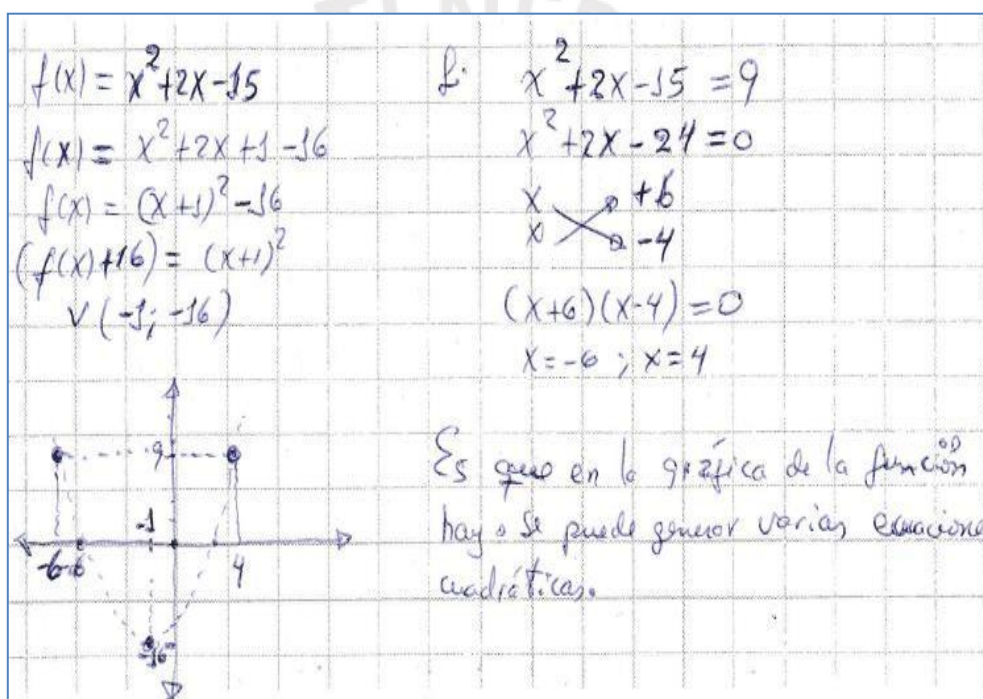 f(x) = x²+2x-15
f(x) = x²+2x+1-16
f(x) = (x+1)²-16
(f(x)+16) = (x+1)²
V(-1; -16)
x²+2x-15 = 9
x²+2x-24=0
x +6
x -4
(x+6)(x-4)=0
x=-6 ; x=4
9
-1
-6 4
-16
Es que en la gráfica de la función
hay o se puede generar varias ecuacione
cuadráticas.